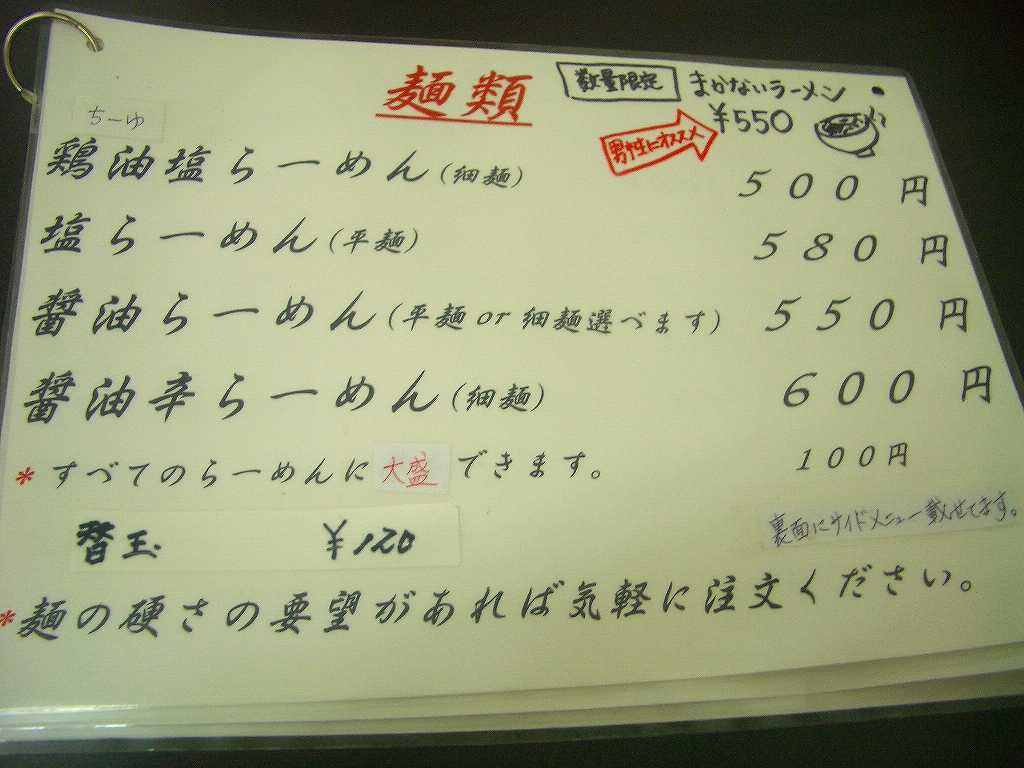 麺類
数量限定 まかないラーメン
¥550
男性にオススメ
ちーゆ
鶏油塩らーめん(細麺) 500円
塩らーめん(平麺) 580円
醤油らーめん(平麺or細麺選べます) 550円
醤油辛らーめん(細麺) 600円
*すべてのらーめんに大盛できます。 100円
替玉 ¥120
裏面にサイドメニュー載せてます。
*麺の硬さの要望があれば気軽に注文ください。